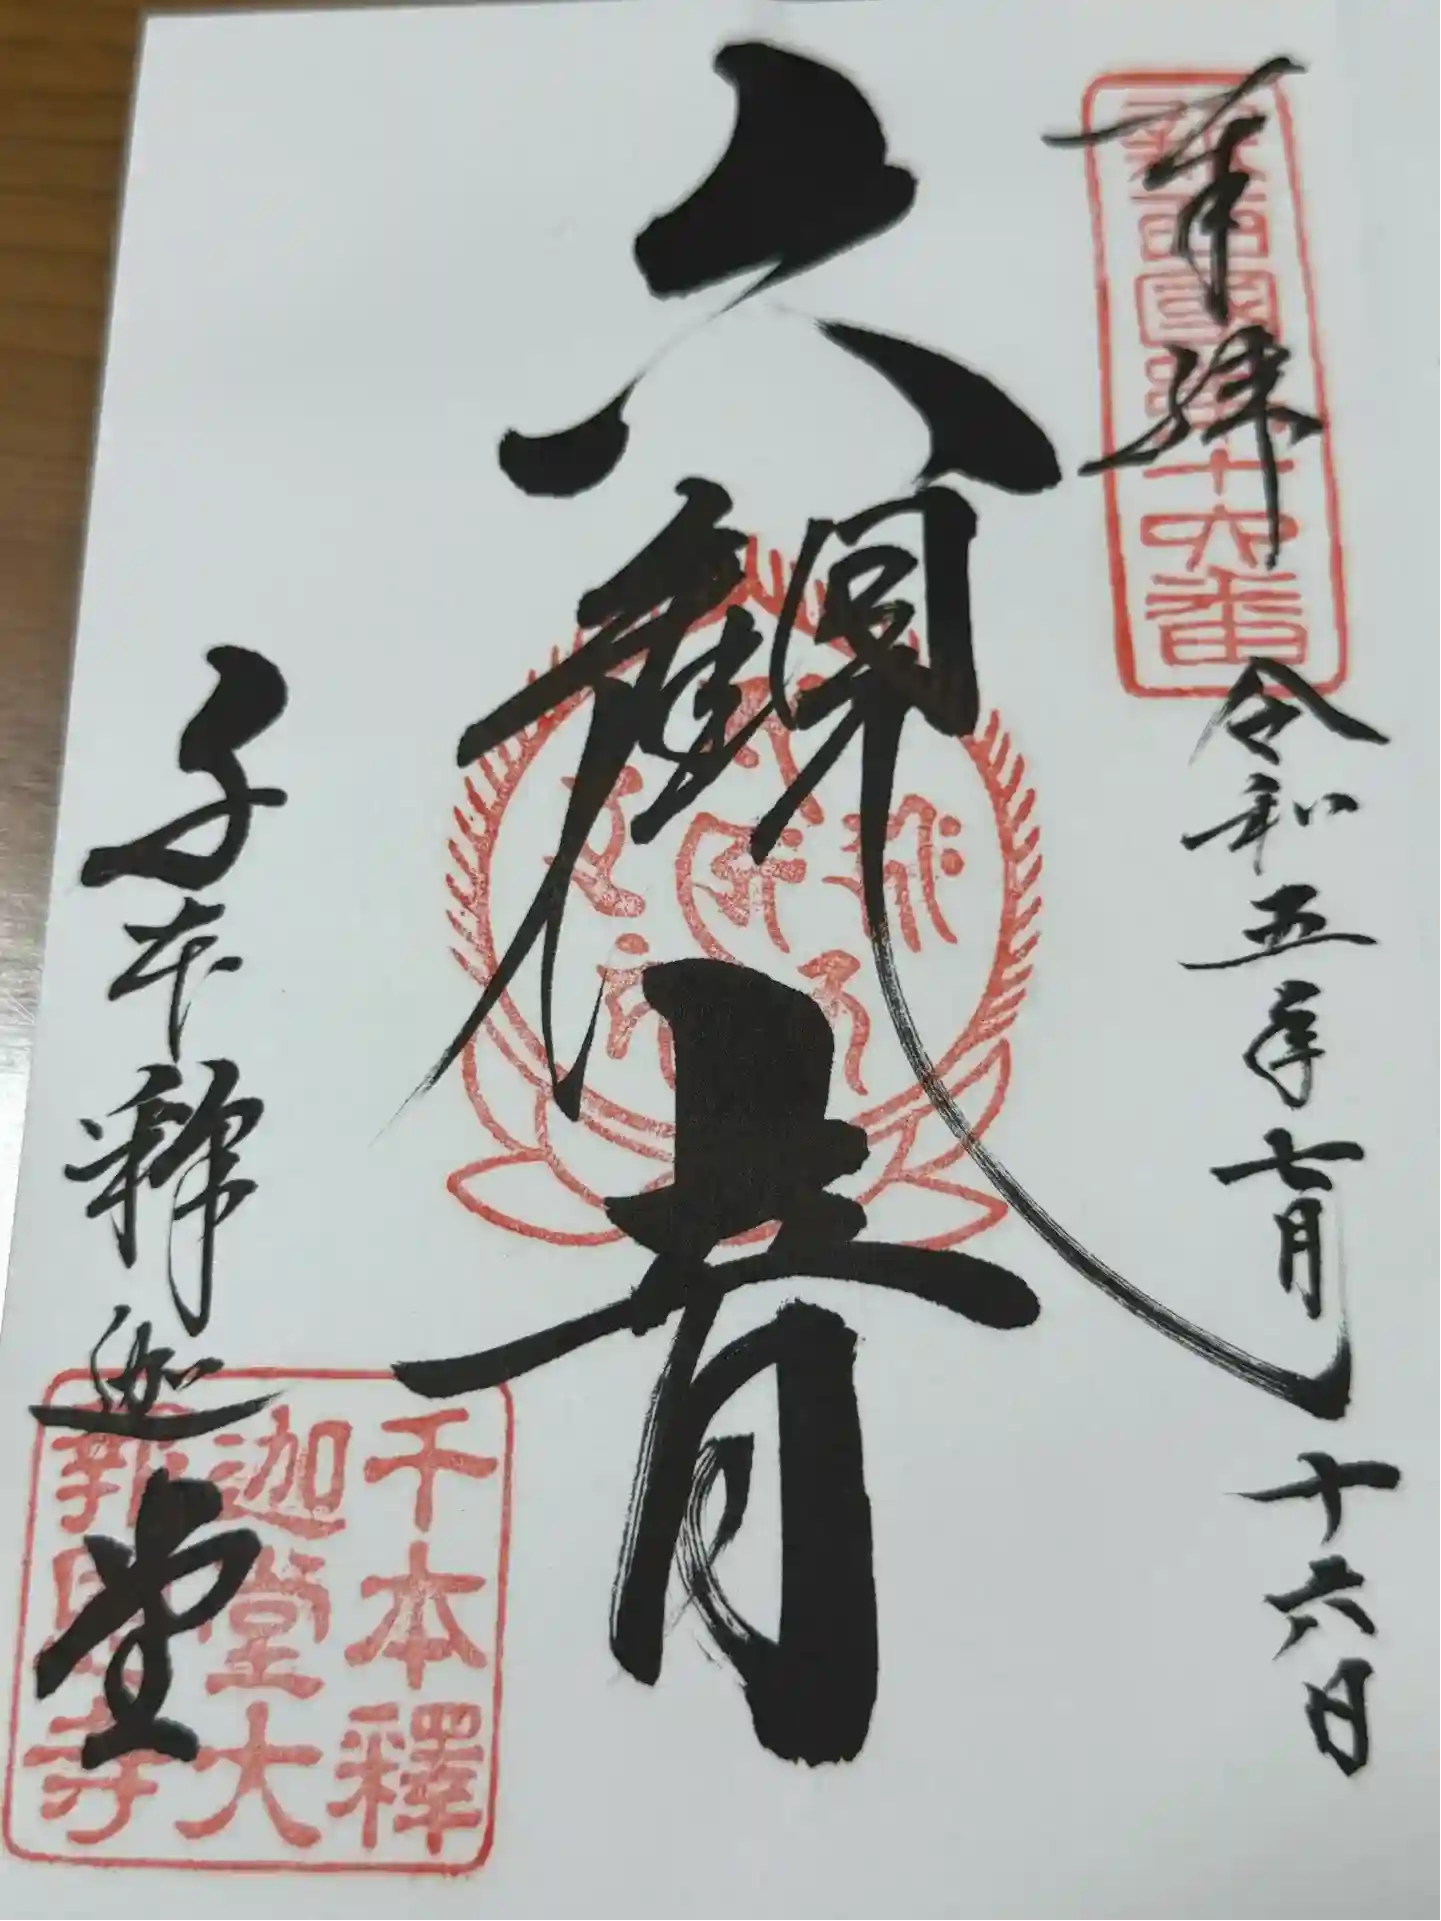 奉拝
新西国第十六番
令和五年七月十六日
六観音
千本釋迦堂
千本釋
迦堂大
報恩寺